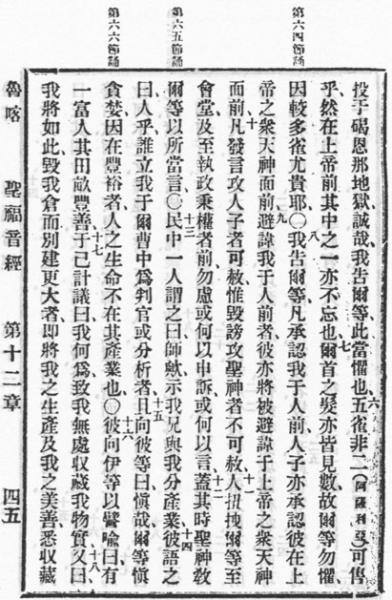 第六四節誦
第六五節誦
第六六節誦
投于碣恩那地獄誠哉我告爾等此當懼也六五雀非二(阿薩利亞)可售
乎然在上帝前其中之一亦不忘也七爾首之髮亦皆見數故爾等勿懼
因較多雀尤貴耶〇八我告爾等凡承認我于人前人子亦承認彼在上
帝之衆天神面前九避諱我于人前者彼亦將被避諱于上帝之衆天神
面前十凡發言攻人子者可赦惟毀謗攻聖神者不可赦十一人扭拽爾等至
會堂及至執政秉權者前勿慮或何以申訴或何以言十二蓋其時聖神教
爾等以所當言〇十三民中一人謂之曰師歟示我兄與我分產業十四彼語之
曰人乎誰立我于爾曹中爲判官或分析者十五且向彼等曰愼哉爾等愼
貪婪因在豐裕者人之生命不在其產業也〇十六彼向伊等以譬喻曰有
一富人其田畝豐善十七于己計議曰我何爲致我無處収藏我物實十八又曰
我將如此毀我倉而別建更大者即將我之生產及我之美善悉収藏
魯喀 聖福音經 第十二章 四五